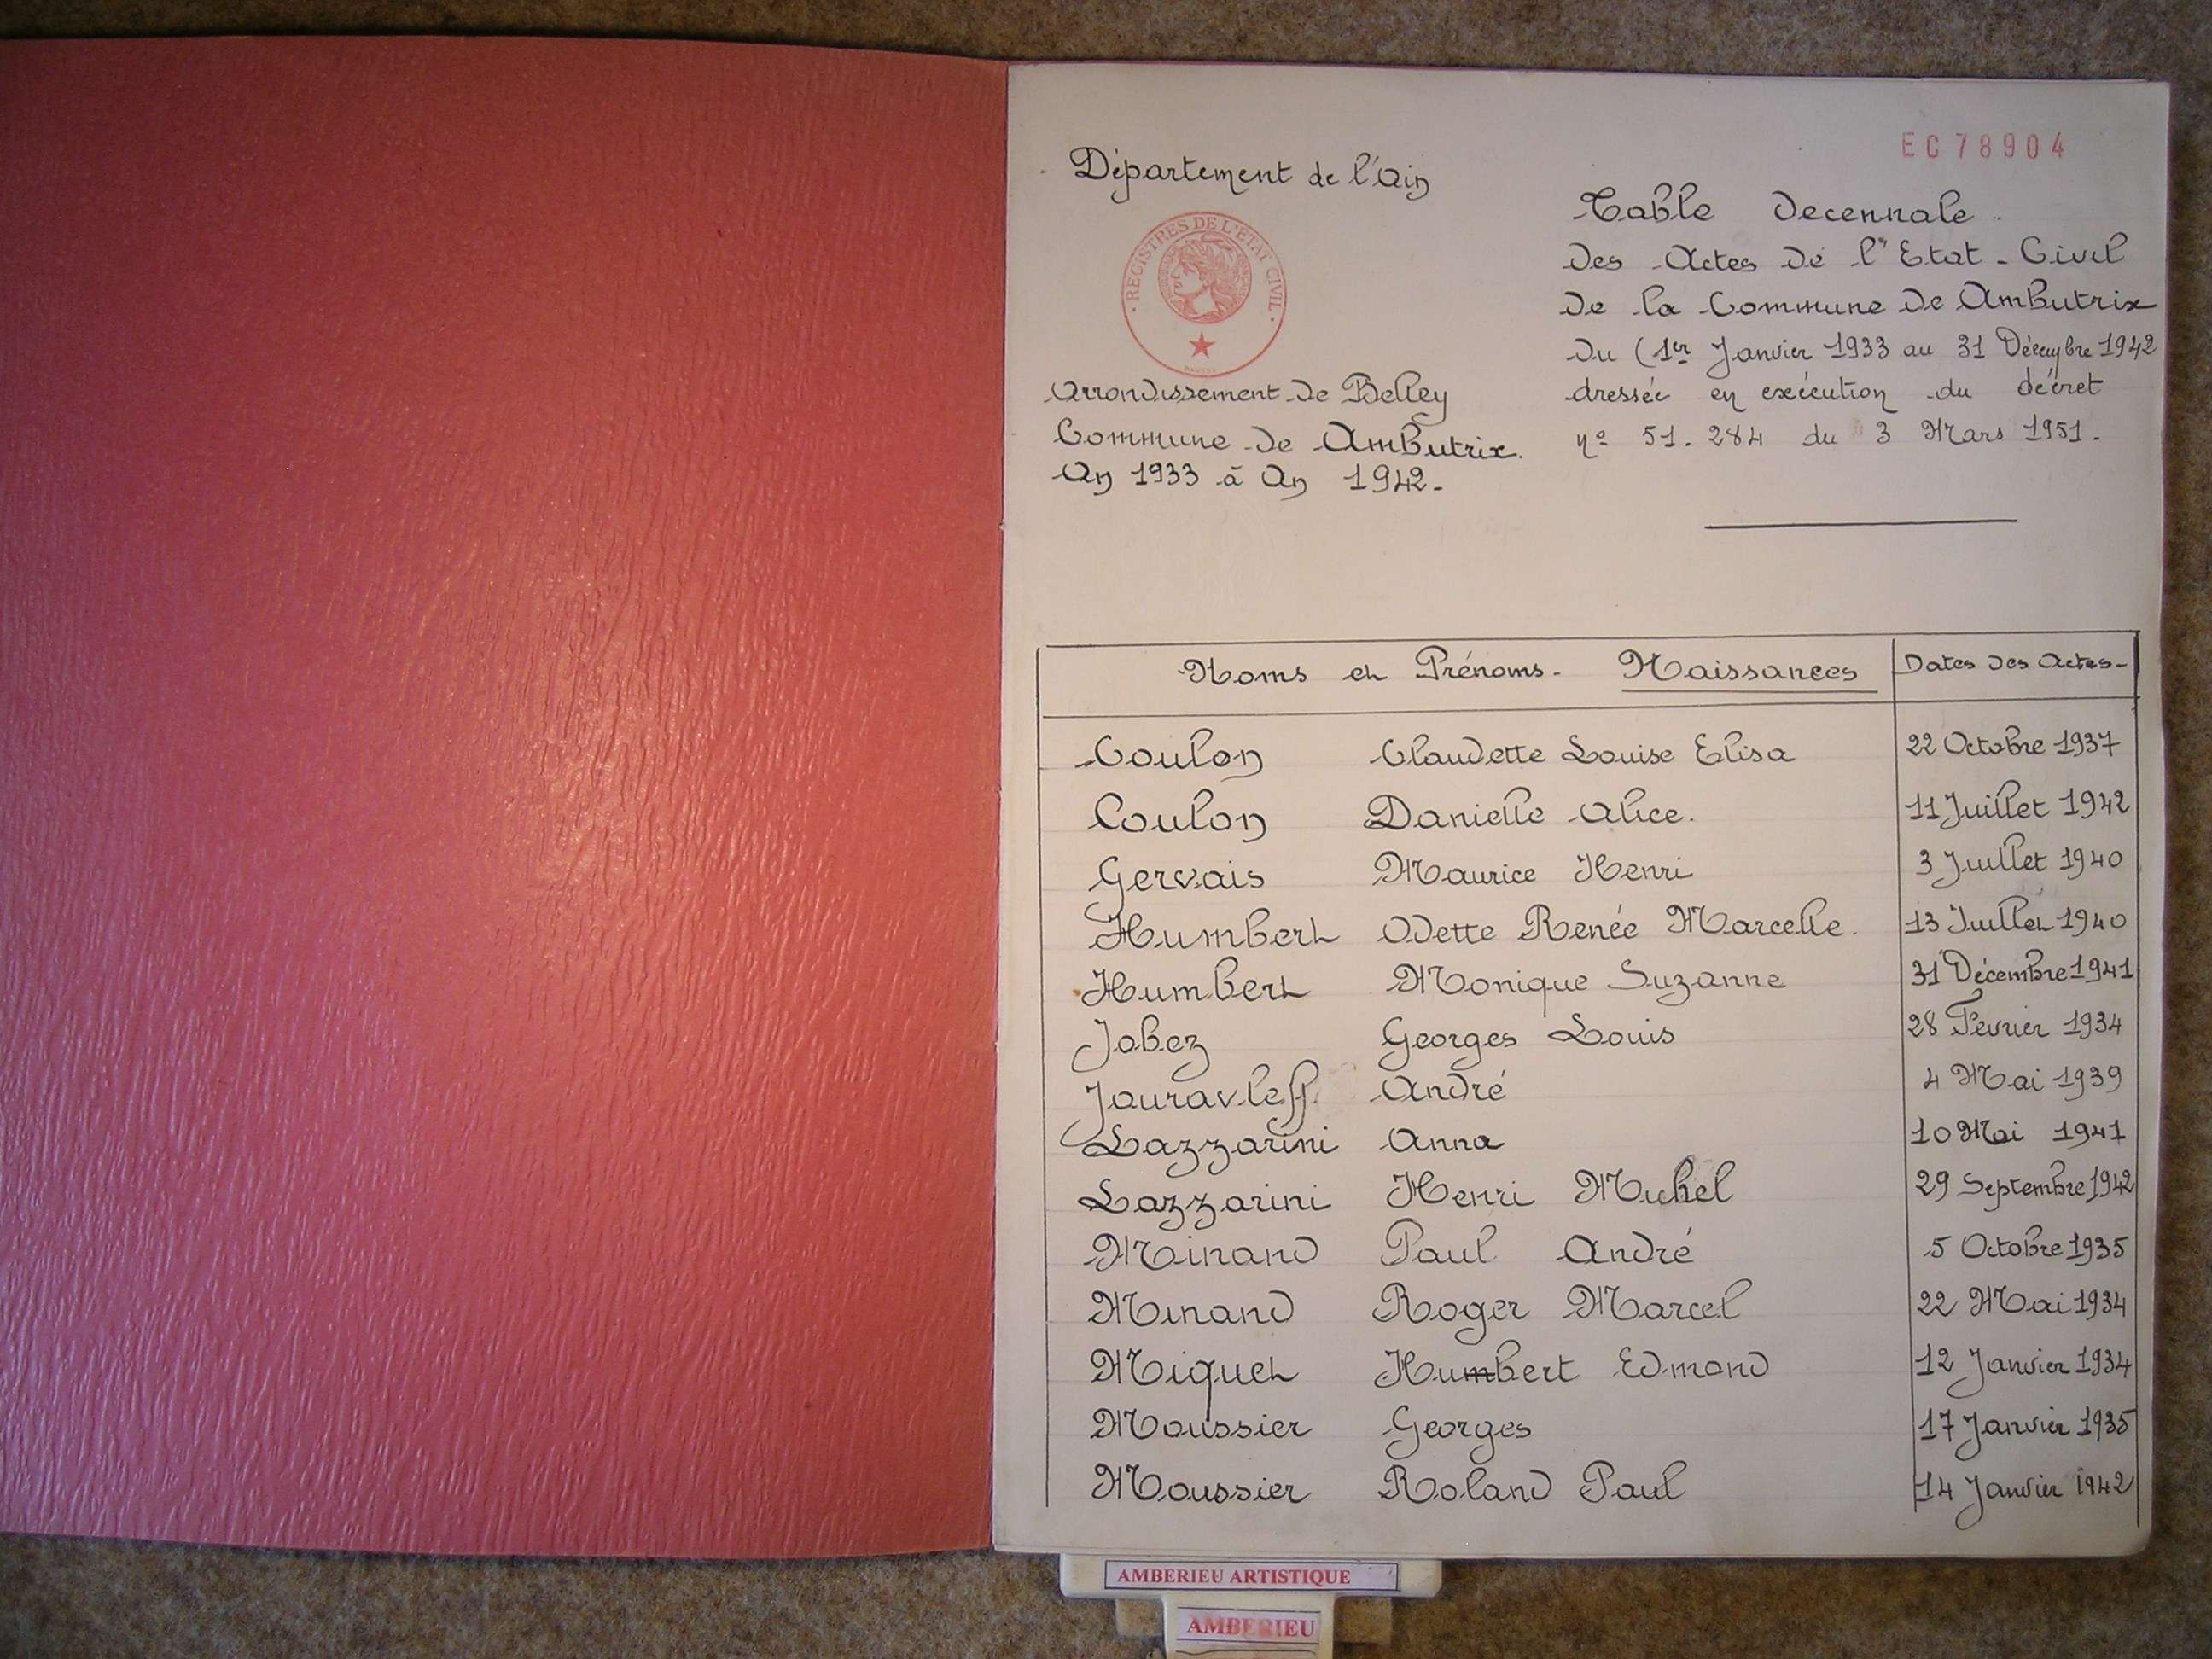 EC78904
Département de l'Ain
REGISTRES DE L'ETAT CIVIL
Arrondissement de Belley
Commune de Ambutrix.
An 1933 à An 1942.
Table Decennale
Des Actes De l'Etat-Civil
De la Commune De Ambutrix
Du (1er Janvier 1933 au 31 Décembre 1942
dressée en exécution du décret
nº 51.284 du 3 Mars 1951.
Noms et Prénoms. Naissances Dates Des Actes
Coulon Claudette Louise Elisa 22 Octobre 1937
Coulon Danielle Alice. 11 Juillet 1942
Gervais Maurice Henri 3 Juillet 1940
Humbert Odette Renée Marcelle. 13 Juillet 1940
Humbert Monique Suzanne 31 Décembre 1941
Jobez Georges Louis 28 Fevrier 1934
Jouravleff André 4 Mai 1939
Lazzarini Anna 10 Mai 1941
Lazzarini Henri Michel 29 Septembre 1942
Minand Paul André 5 Octobre 1935
Minand Roger Marcel 22 Mai 1934
Miquet Humbert Edmond 12 Janvier 1934
Moussier Georges 17 Janvier 1935
Moussier Roland Paul 14 Janvier 1942
AMBERIEU ARTISTIQUE
AMBERIEU